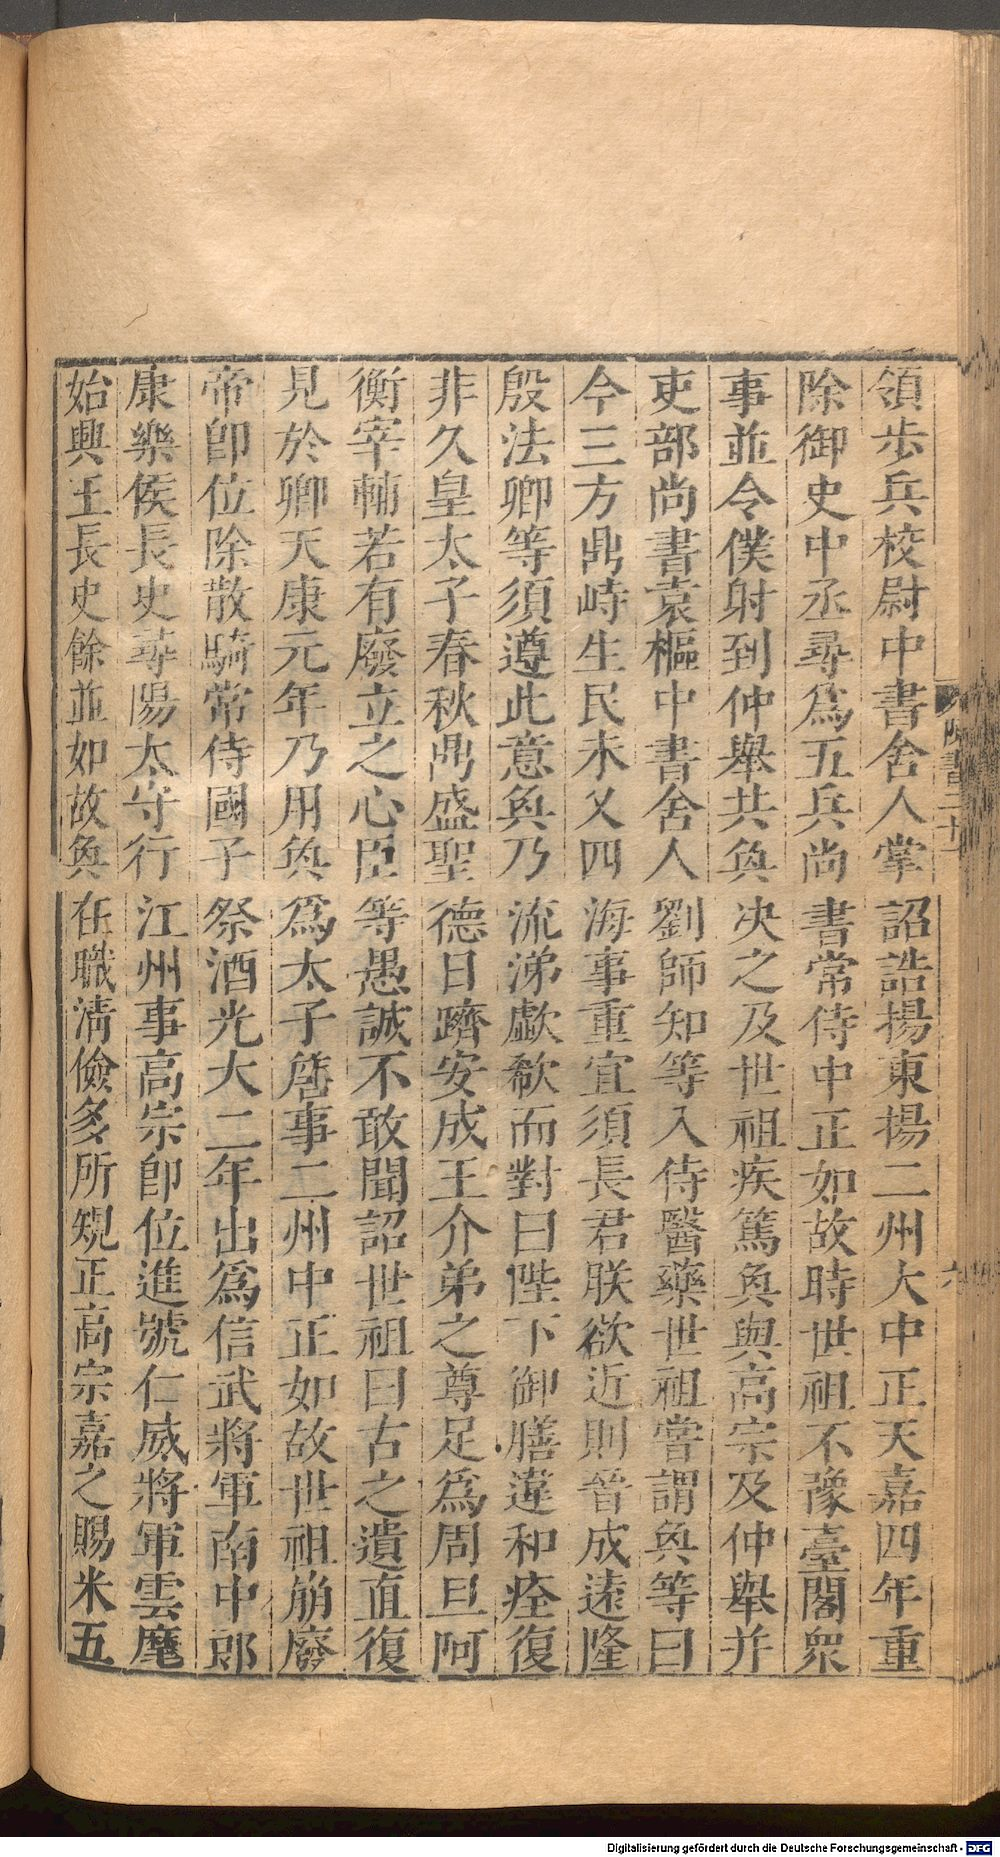 領歩兵校尉中書舍人掌詔誥揚東揚二州大中正天嘉四年重
除御史中丞尋爲五兵尚書常侍中正如故時世祖不豫臺閣衆
事並令僕射到仲舉共奐决之及世祖疾篤奐與高宗及仲舉并
吏部尚書袁樞中書舍人劉師知等入侍醫藥世祖嘗謂奐等曰
今三方鼎峙生民未乂四海事重宜須長君朕欲近則晉成遠隆
殷法卿等須遵此意奐乃流涕歔欷而對曰陛下御膳違和痊復
非久皇太子春秋鼎盛聖德日躋安成王介弟之尊足爲周旦阿
衡宰輔若有廢立之心臣等愚誠不敢聞詔世祖曰古之遺直復
見於卿天康元年乃用奐爲太子詹事二州中正如故世祖崩廢
帝卽位除散騎常侍國子祭酒光大二年出爲信武將軍南中郎
康樂侯長史尋陽太守行江州事高宗卽位進號仁威將軍雲麾
始興王長史餘並如故奐在職淸儉多所規正高宗嘉之賜米五
陳書二十一
六
Digitalisierung gefördert durch die Deutsche Forschungsgemeinschaft - DFG